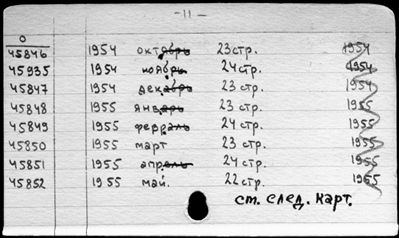 - 11 -
0
45846 1954 октябрь 23 стр. 1954
45935 1954 ноябрь 24 стр. 1954
45847 1954 декабрь 23 стр. 1954
45848 1955 январь 23 стр. 1955
45849 1955 февраль 24 стр. 1955
45850 1955 март 23 стр. 1955
45851 1955 апрель 24 стр. 1955
45852 1955 май. 22 стр. 1955
ст. след. карт.